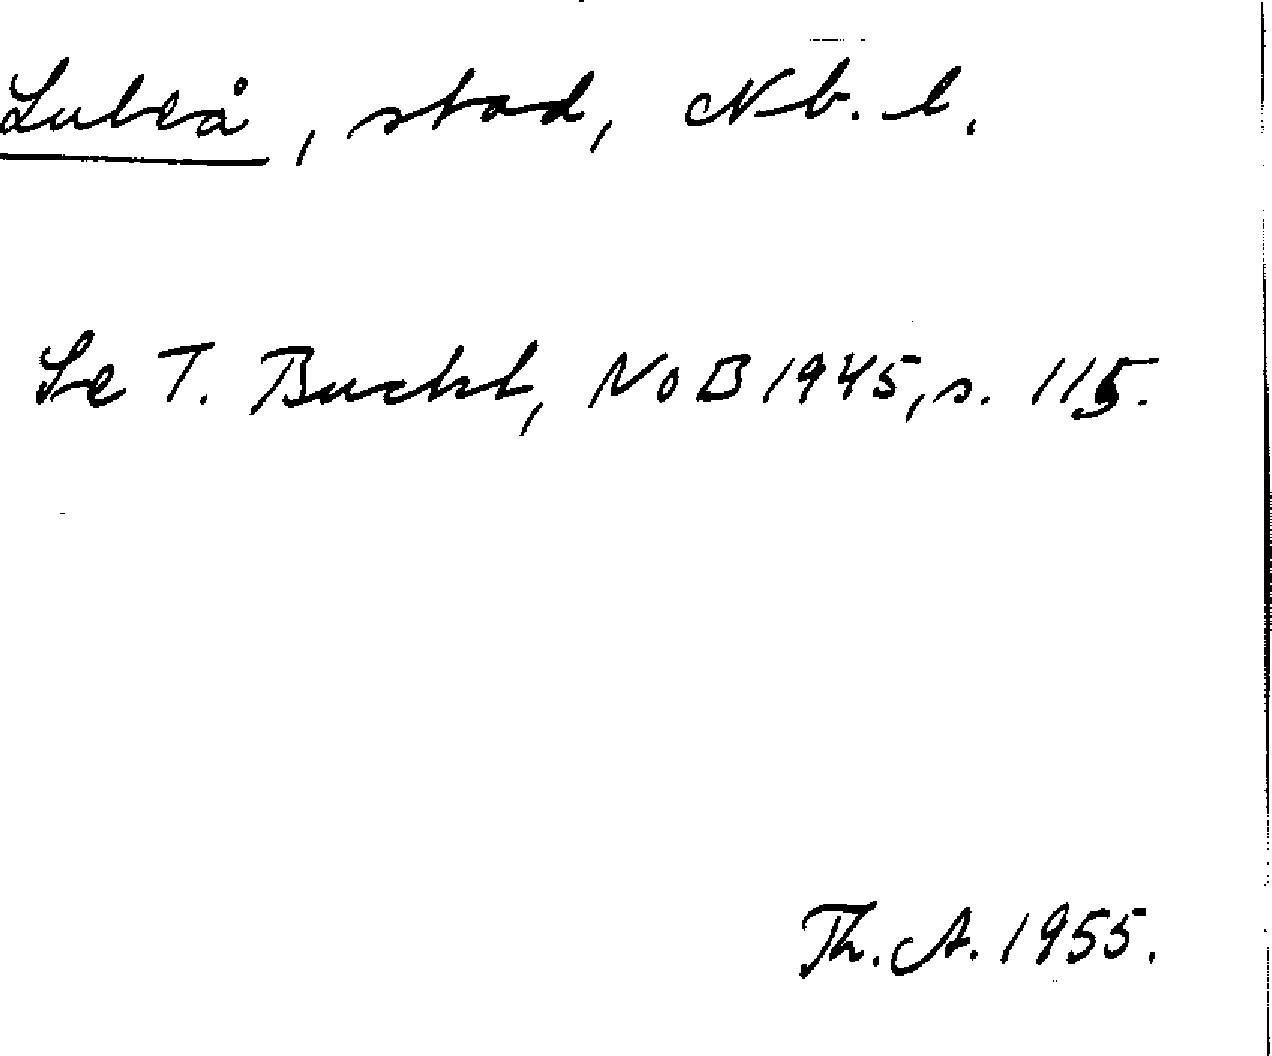 Luleå, stad, Nb. l.
Se T. Bucht, NoB 1945, s. 115.
Th. A. 1955.